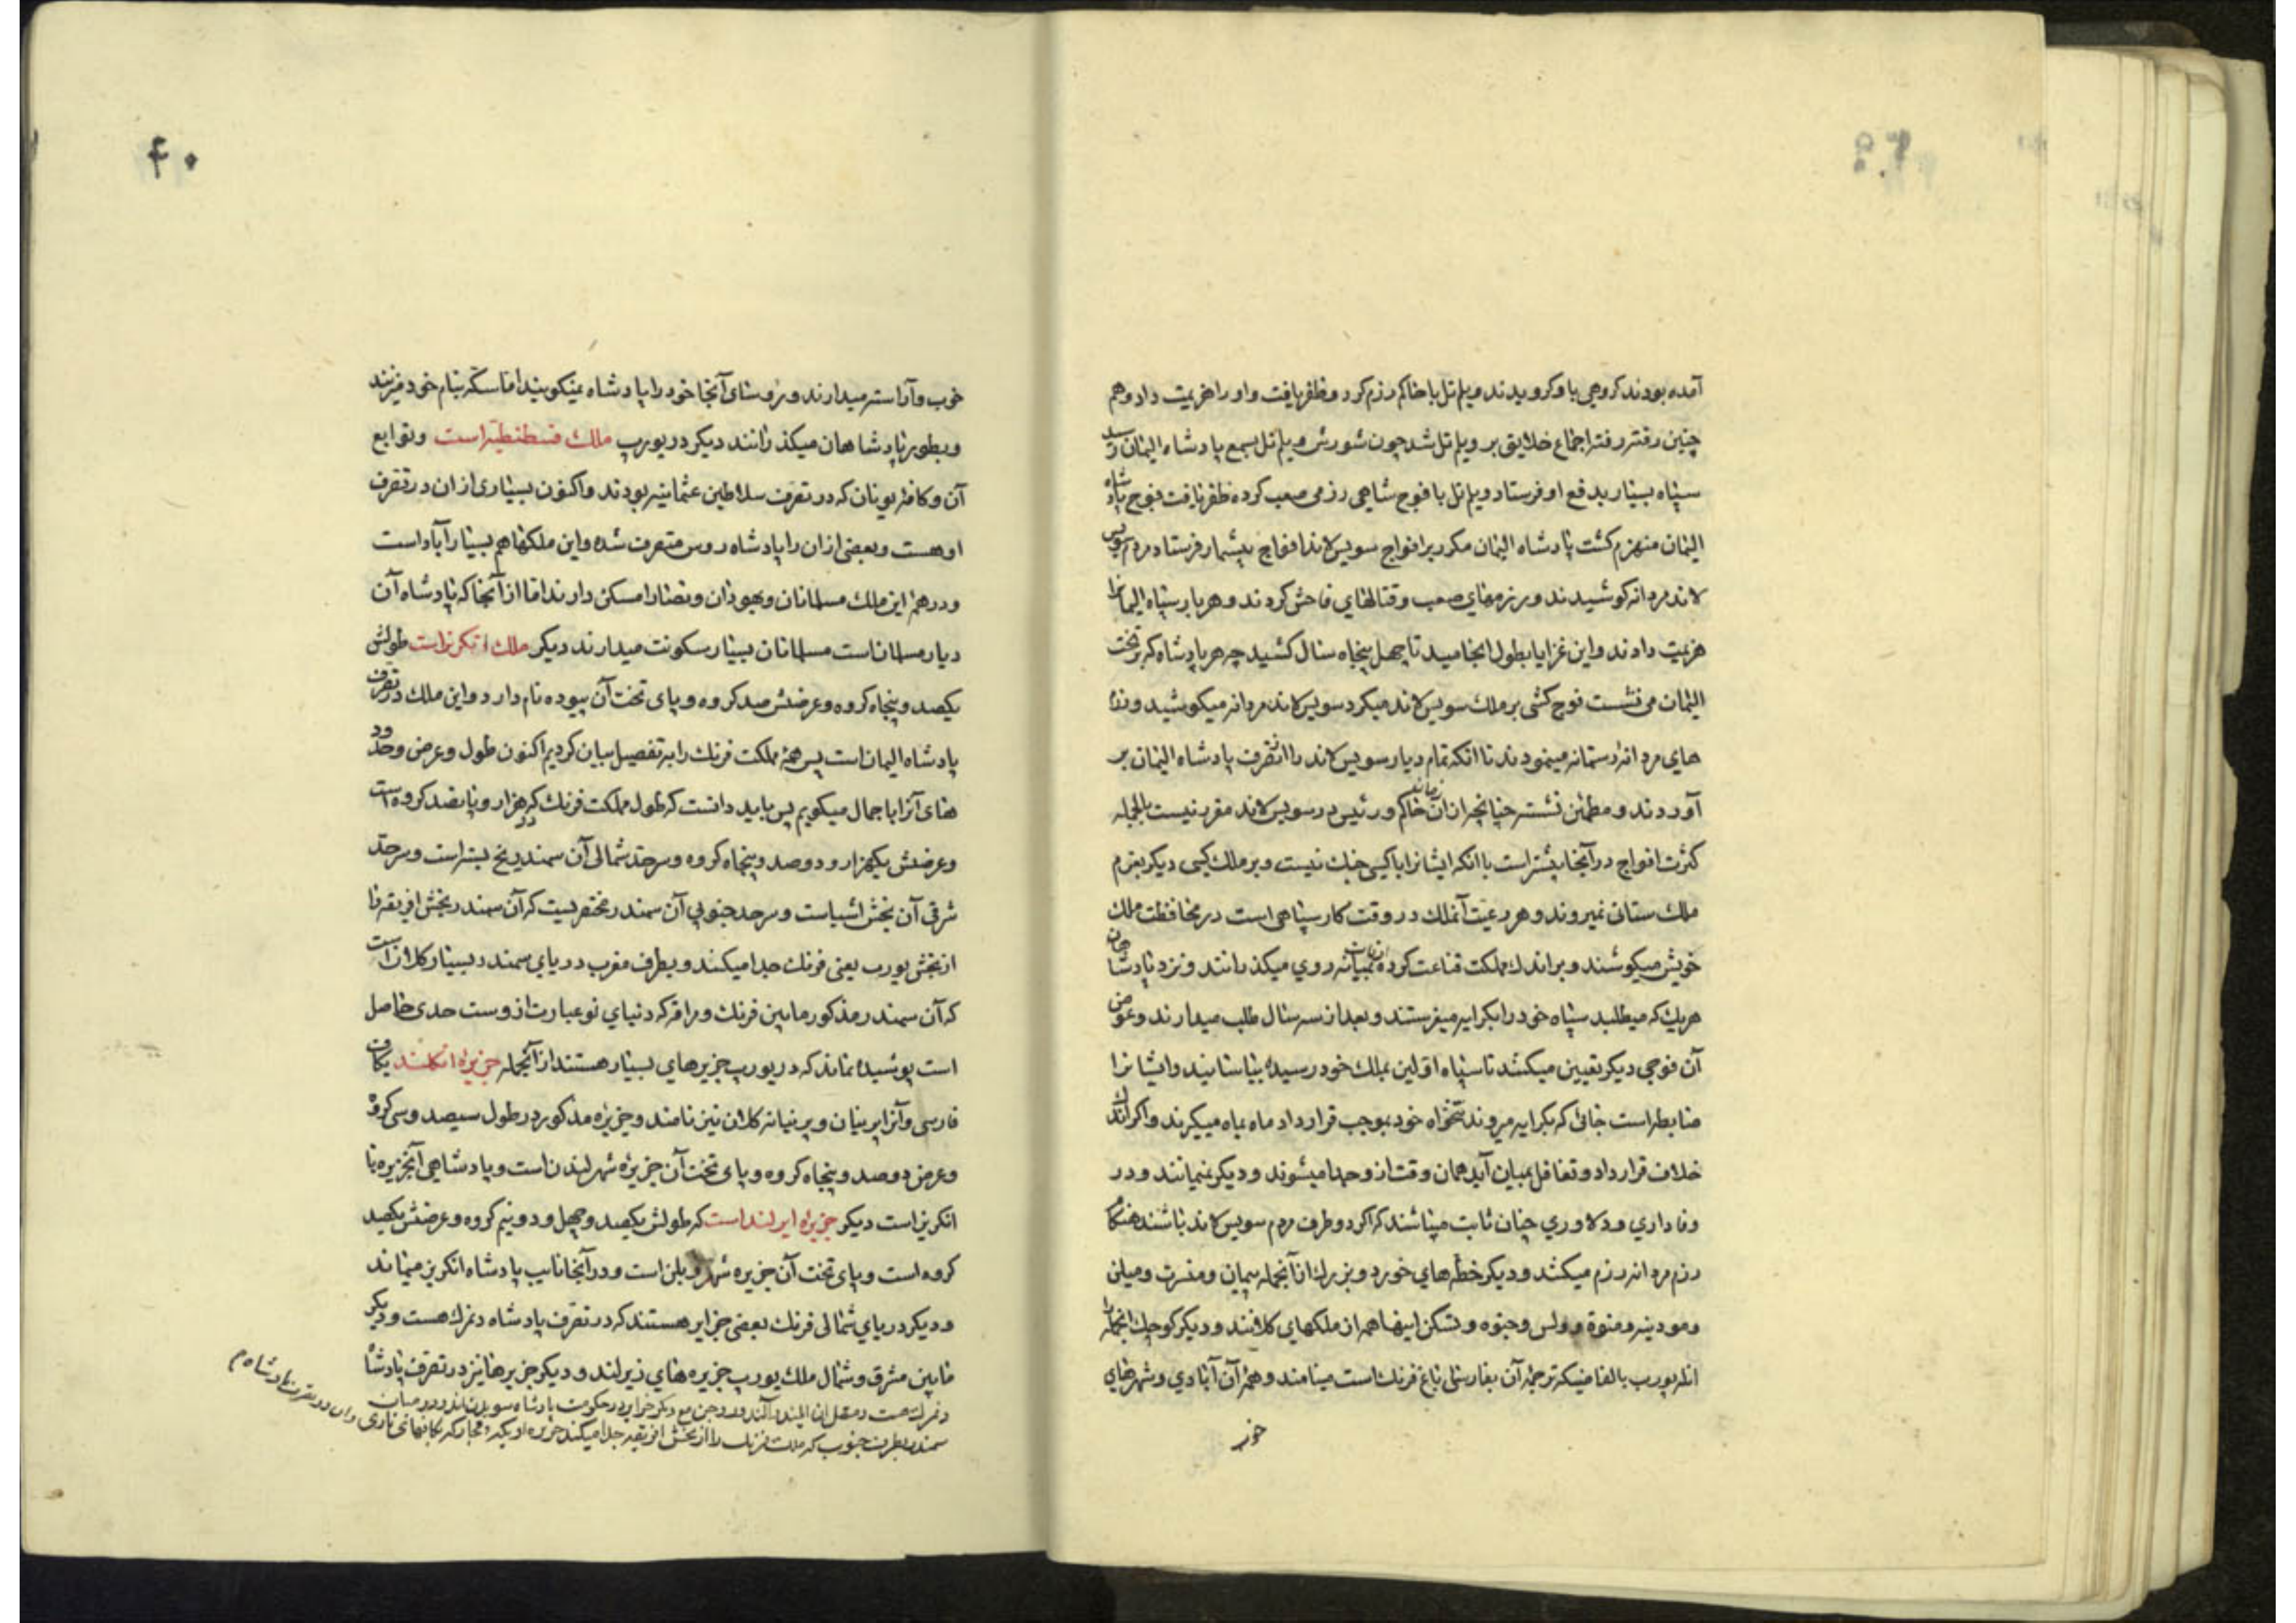 آمده بودند کروهی باو کرویدند ویلم تل با حاکم رزم کرد و ظفر یافت و او را هزیمت داد و هم
چنین رفته رفته اجتماع خلایق بر ویلم تل شد چون شورش ویلم تل بسمع پادشاه الیمان رسید
سپاه بسیار بدفع او فرستاد ویلم تل با فوج شاهی رزمی صعب کرده ظفر یافت فوج پادشاه
الیمان منهزم کشت پادشاه الیمان مکرر بر افواج سویس لاند افواج بیشمار فرستاد مردم سویس
لاند مردانه کوشیدند و رزمهای صعب و قتالهای فاحش کردند و هر بار سپاه الیمانرا
هزیمت دادند و این غزایا بطول انجامید تا چهل پنجاه سال کشید چه هر پادشاه که بر تخت
الیمان می نشست فوج کشی بر ملک سویس لاند میکرد سویس لاند مردانه میکوشید و
های مردانه رستمانه مینمودند تا انکه تمام دیار سویس لاند را از تصرف پادشاه الیمان بر
آوردند و مطمئن نشسته چنانچه از ان زمان حاکم و رئیس در سویس لاند مقرر نیست بالجمله
کثرت افواج در آنجا بیشتر است با انکه ایشانرا با کسی جنک نیست و بر ملک کسی دیکر بعزم
ملک ستانی نمیروند و هر رعیت آنملک در وقت کار سپاهی است در محافظت ملک
خویش میکوشند و بر اندک مملکت قناعت کرده بمیانه روی میکذرانند و نزد پادشاهان
هریک که میطلبد سپاه خود را بکرایه میفرستند و بعد از سه سال طلب میدارند و عوض
آن فوجی دیکر تعیین میکنند تا سپاه اولین بملک خود رسیده بیاسایند و ایشانرا
ضابطه است جائی که بکرایه میروند تنخواه خود بموجب قرارداد ماه بماه میکیرند و اکر اندک
خلاف قرارداد و تغافل بمیان آید همان وقت از وجدا میشوند و دیکر نمیمانند و در
وفاداری و دلاوری چنان ثابت میباشند که اکر دو طرف مردم سویس لاند باشند هنکام
رزم مردانه رزم میکنند و دیکر خطه های خورد و بزرک از آنجمله و میلن
و مودینه و منتوه و ولس و جنوه و تسکن اینها همه ان ملکهای کلانند و دیکر کوچک انجمله را
اتله یورب بالفا میکه ترجمهٔ آن بفارسی باغ فرنک است مینامند و همهٔ آن آبادی و شهرهای
خوب
۴۰
خوب و آراسته میدارند و رؤسای آنجا خود را پادشاه نمیکویند اما سکه بنام خود میزنند
و بطور پادشاهان میکذرانند دیکر در یورپ ملک قسطنطنیه است و توابع
آن و کافهٔ یونان که در تصرف سلاطین عثمانیه بودند و اکنون بسیاری از ان در تصرف
او هست و بعضی از ان را پادشاه روس متصرف شده و این ملکها هم بسیار آباد است
و در همهٔ این ممالک مسلمانان و یهودان و نصارا مسکن دارند اما از آنجا که پادشاه آن
دیار مسلمان است مسلمانان بسیار سکونت میدارند دیکر ملک انکریز است طولش
یکصد و پنجاه کروه و عرضش صد کروه و پای تخت آن بیوده نام دارد و این ملک در تصرف
پادشاه الیمان است پس همهٔ مملکت فرنک را به تفصیل بیان کردیم اکنون طول و عرض و حدود
های آنرا باجمال میکویم پس باید دانست که طول مملکت فرنک دو هزار و پانصد کروه است
و عرضش یکهزار و دوصد و پنجاه کروه و سرحد شمالی آن سمندر یخ بسته است و سرحد
شرقی آن بخش اشیاست و سرحد جنوبی آن سمندر مختصریست که آن سمندر بخش افریقه را
از بخش یورپ یعنی فرنک جدا میکنند و بطرف مغرب دریای سمندر بسیار کلان است
که آن سمندر مذکور مابین فرنک و مرافه که دنیای نو عبارت از وست حدی حاصل
است پوشیده نماند که در یورپ جزیرهای بسیار هستند از آنجمله جزیرهٔ انکلند بکاف
فارسی و آنرا برنیان و برنیانه کلان نیز نامند و جزیرهٔ مذکور در طول سیصد و سی کروه
و عرض دوصد و پنجاه کروه و پای تخت آن جزیره شهر لندن است و پادشاهی آنجزیره با
انکریز است دیکر جزیرهٔ ایرلند است که طولش یکصد و چهل و دو نیم کروه و عرضش یکصد
کروه است و پای تخت آن جزیره شهر دبلن است و در آنجا نایب پادشاه انکریز میماند
و دیکر دریای شمالی فرنک بعضی جزایر هستند که در تصرف پادشاه دنمرک هست و دیکر
مابین مشرق و شمال ملک یورپ جزیره های زیرلند و دیکر جزیرها نیز در تصرف پادشاه
دنمرک هست و متصل ان و دیکر جزایر در حکومت پادشاه سویدن اند و در میان
سمندر بطرف جنوب که ملک فرنک را از بخش افریقیه جدا میکند جزیره